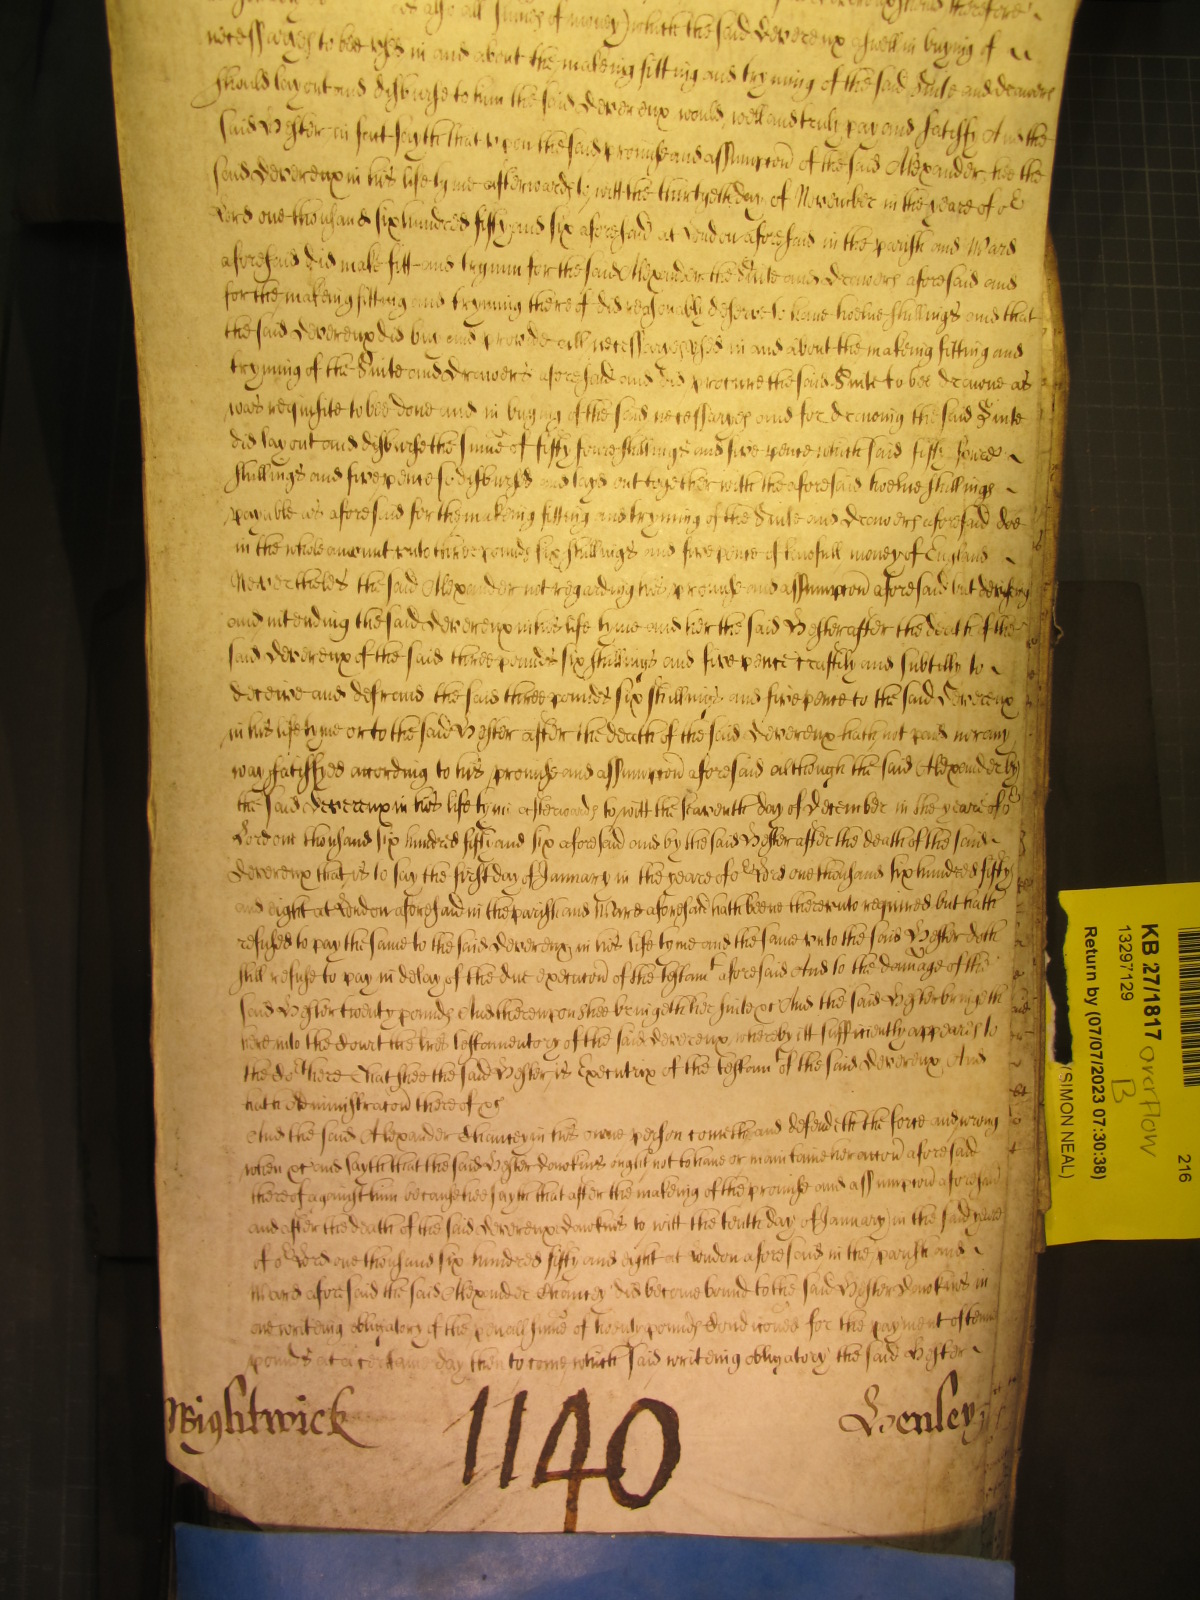 as also all sumes of money which the said Devereux aswell in buying of
necessaryes to bee used in and about the makeing fitting and tryming of the said Suite and drawers
should lay out and disburse to him the said Devereux would well and truly pay and satisfy And the
said Hester in fact sayth that upon the said promise and assumpcon of the said Alexander, hee the
said Devereux in his life tyme afterwards to witt the thirtyeth day of November in the yeare of oᵘʳ
Lord one thousand six hundred fifty and six aforesaid at London aforesaid in the parish and Ward
aforesaid did make fitt and trymm for the said Alexander the Suite and drawers aforesaid and
for the makeing fitting and tryming thereof did reasonably deserve to have twelve shillings and that
the said Devereux did buy and provide all necessaryes used in and about the makeing fitting and
tryming of the Suite and Drawers aforesaid and did procure the said Suite to bee drawne as
was requisite to bee done and in buying of the said necessaryes and for drawing the said Suite
did lay out and disburse the sume of fifty foure shillings and five pence which said fifty foure
shillings and five pence so disbursed and layd out together with the aforesaid twelve shillings
payable as aforesaid for the makeing fitting and tryming of the Suite and Drawers aforesaid doe
in the whole amount unto three pounds six shillings and five pence of lawfull money of England
Neverthelesse the said Alexander not regarding his promise and assumpcon aforesaid but deviseing
and intending the said Devereux in his life tyme and her the said Hester after the death of the
said Devereux of the said three pounds six shillings and five pence craftily and subtilly to
deceive and defraud the said three pounds six shillings and five pence to the said Devereux
in his life tyme or to the said Hester after the death of the said Devereux hath not paid nor any
way satisfyed according to his promise and assumpcon aforesaid although the said Alexander by
the said Devereux in his life tyme afterwards to witt the seaventh day of December in the yeare of oʳ
Lord one thousand six hundred fifty and six aforesaid and by the said Hester after the death of the said
Devereux that is to say the first day of January in the yeare of oʳ Lord one thousand six hundred fifty
and eight at London aforesaid in the parish and Ward aforesaid hath beene thereunto required but hath
refused to pay the same to the said Devereux in his life tyme and the same unto the said Hester doth
still refuse to pay in delay of the due execucon of the testamᵗ aforesaid And to the damage of the
said Hester twenty pounds And thereupon shee bringeth her suite &c And the said Hester bringeth
here into the Court the lres testamentory of the said Devereux whereby itt sufficiently appears to
the Coʳt here That shee the said Hester is Executrix of the testamᵗ of the said Devereux And
hath Administracon thereof &c
And the said Alexander Chancey in his owne person cometh and defendeth the force and wrong
when &c and sayth that the said Hester Dawkins ought not to have or maintaine her accon aforesaid
thereof against him because hee sayth that after the makeing of the promise and assumpcon aforesaid
and after the death of the said Devereux Dawkins to witt the tenth day of January in the said yeare
of oʳ Lord one thousand six hundred fifty and eight at London aforesaid in the parish and
Ward aforesaid the said Alexander Chancey did become bound to the said Hester Dawkins in
one writeing obligatory of the penall sume of twenty pounds Condiconed for the payment of tenn
pounds at a certaine day then to come, which said writeing obligatory the said Hester
Wightwick
1140
Henley
KB 27/1817 overflow
13297129
B
216
Return by (07/07/2023 07:30:38)
(SIMON NEAL)